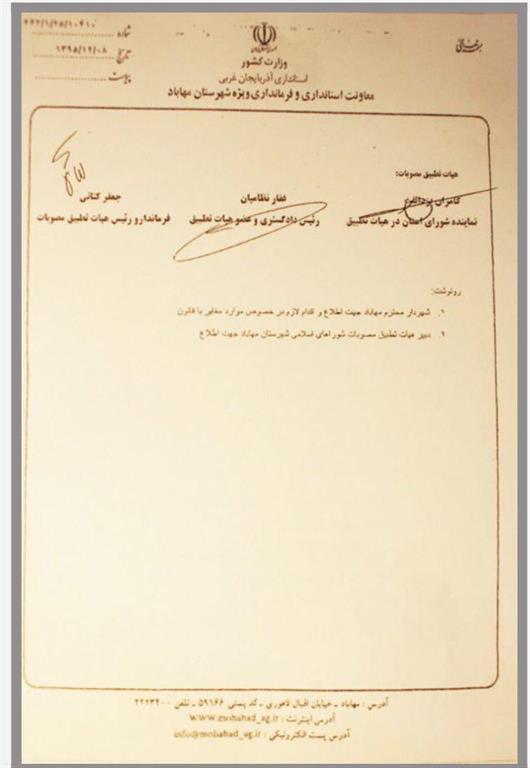 ۲۴۲/۱/۲۵/۱۰۴۱۰
شماره
تاریخ ۱۳۹۵/۱۲/۰۸
پیوست
بسمه تعالی
وزارت کشور
استانداری آذربایجان غربی
معاونت استانداری و فرمانداری ویژه شهرستان مهاباد
هیات تطبیق مصوبات:
کامران
غفار نظامیان
جعفر کتانی
نماینده شورای استان در هیات تطبیق
رئیس دادگستری و عضو هیات تطبیق
فرماندار و رئیس هیات تطبیق مصوبات
رونوشت:
۱. شهردار محترم مهاباد جهت اطلاع و اقدام لازم در خصوص موارد مغایر با قانون
۲. دبیر هیات تطبیق مصوبات شوراهای اسلامی شهرستان مهاباد جهت اطلاع
آدرس : مهاباد ـ خیابان اقبال لاهوری ـ کد پستی ۵۹۱۶۶ ـ تلفن ۲۲۲۳۲۰۰
آدرس اینترنت : www.mohabad_ag.ir
آدرس پست الکترونیکی : info@mohabad_ag.ir